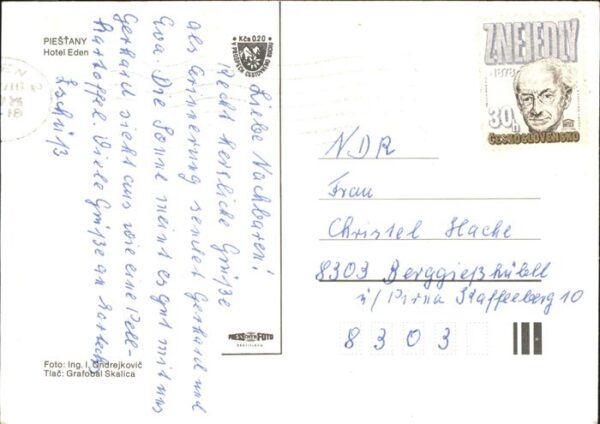 PIEŠŤANY
Hotel Eden
Kčs 0,20
Liebe Nachbaren!
Recht herzliche Grüße
als Erinnerung sendet Gerhard und
Eva. Die Sonne meint es gut mit uns
Gerhard sieht aus wie eine Pell-
kartoffel. Viele Grüße an
Tschüß
PRESSFOTO
BRATISLAVA
Foto: Ing. I. Ondrejkovič
Tlač: Grafobal Skalica
ZNEJEDLÝ
1878
30h
ČESKOSLOVENSKO
NDR
Frau
Christel Hache
8303 Berggießhübel
ü/ Pirna Staffelberg 10
8 3 0 3